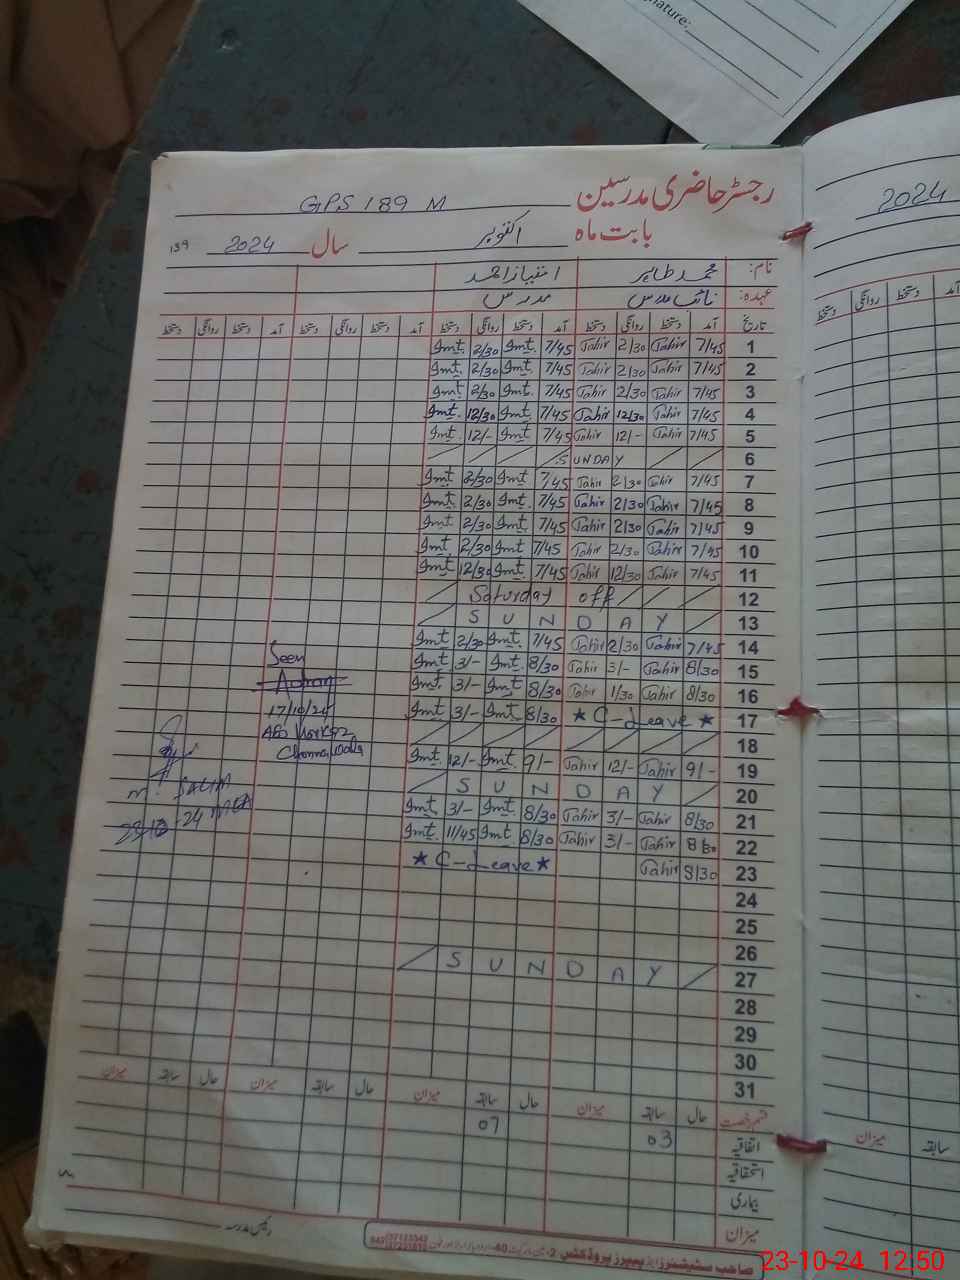 nature:
رجسٹر حاضری مدرسین GPS 189 M
بابت ماہ اکتوبر سال 2024
139
2024
نام: محمد طاہر امتیاز احمد
عہدہ: نائب مدرس مدرس
تاریخ آمد دستخط روانگی دستخط آمد دستخط روانگی دستخط آمد دستخط روانگی دستخط آمد دستخط روانگی دستخط
1 7/45 Tahir 2/30 Tahir 7/45 Imt. 2/30 Imt.
2 7/45 Tahir 2/30 Tahir 7/45 Imt. 2/30 Imt.
3 7/45 Tahir 2/30 Tahir 7/45 Imt. 2/30 Imt.
4 7/45 Tahir 12/30 Tahir 7/45 Imt. 12/30 Imt.
5 7/45 Tahir 12/- Tahir 7/45 Imt 12/- Imt.
6 SUNDAY
7 7/45 Tahir 2/30 Tahir 7/45 Imt. 2/30 Imt
8 7/45 Tahir 2/30 Tahir 7/45 Imt. 2/30 Imt
9 7/45 Tahir 2/30 Tahir 7/45 Imt. 2/30 Imt
10 7/45 Tahir 2/30 Tahir 7/45 Imt 2/30 Imt
11 7/45 Tahir 12/30 Tahir 7/45 Imt. 12/30 Imt.
12 Saturday off
13 SUNDAY
14 7/45 Tahir 2/30 Tahir 7/45 Imt. 2/30 Imt
15 8/30 Tahir 3/- Tahir 8/30 Imt. 3/- Imt.
16 8/30 Tahir 1/30 Tahir 8/30 Imt 3/- Imt.
17 ★ C-Leave ★ 8/30 Imt. 3/- Imt
18
19 9/- Tahir 12/- Tahir 9/- Imt. 12/- Imt.
20 SUNDAY
21 8/30 Tahir 3/- Tahir 8/30 Imt 3/- Imt
22 8/30 Tahir 3/- Tahir 8/30 Imt 11/45 Imt.
23 8/30 Tahir ★ C-Leave ★
24
25
26
27 SUNDAY
28
29
30
31
Seen
17/10/24
M. SALIM
24 MEA
قسم رخصت حال سابقہ میزان حال سابقہ میزان حال سابقہ میزان حال سابقہ میزان
اتفاقیہ 03 07
استحقاقیہ
بیماری
میزان
رئیس مدرسہ
صاحب سٹیشنرز اینڈ پیپرز پروڈکشن
دستخط روانگی دستخط آمد
میزان سابقہ
23-10-24 12:50